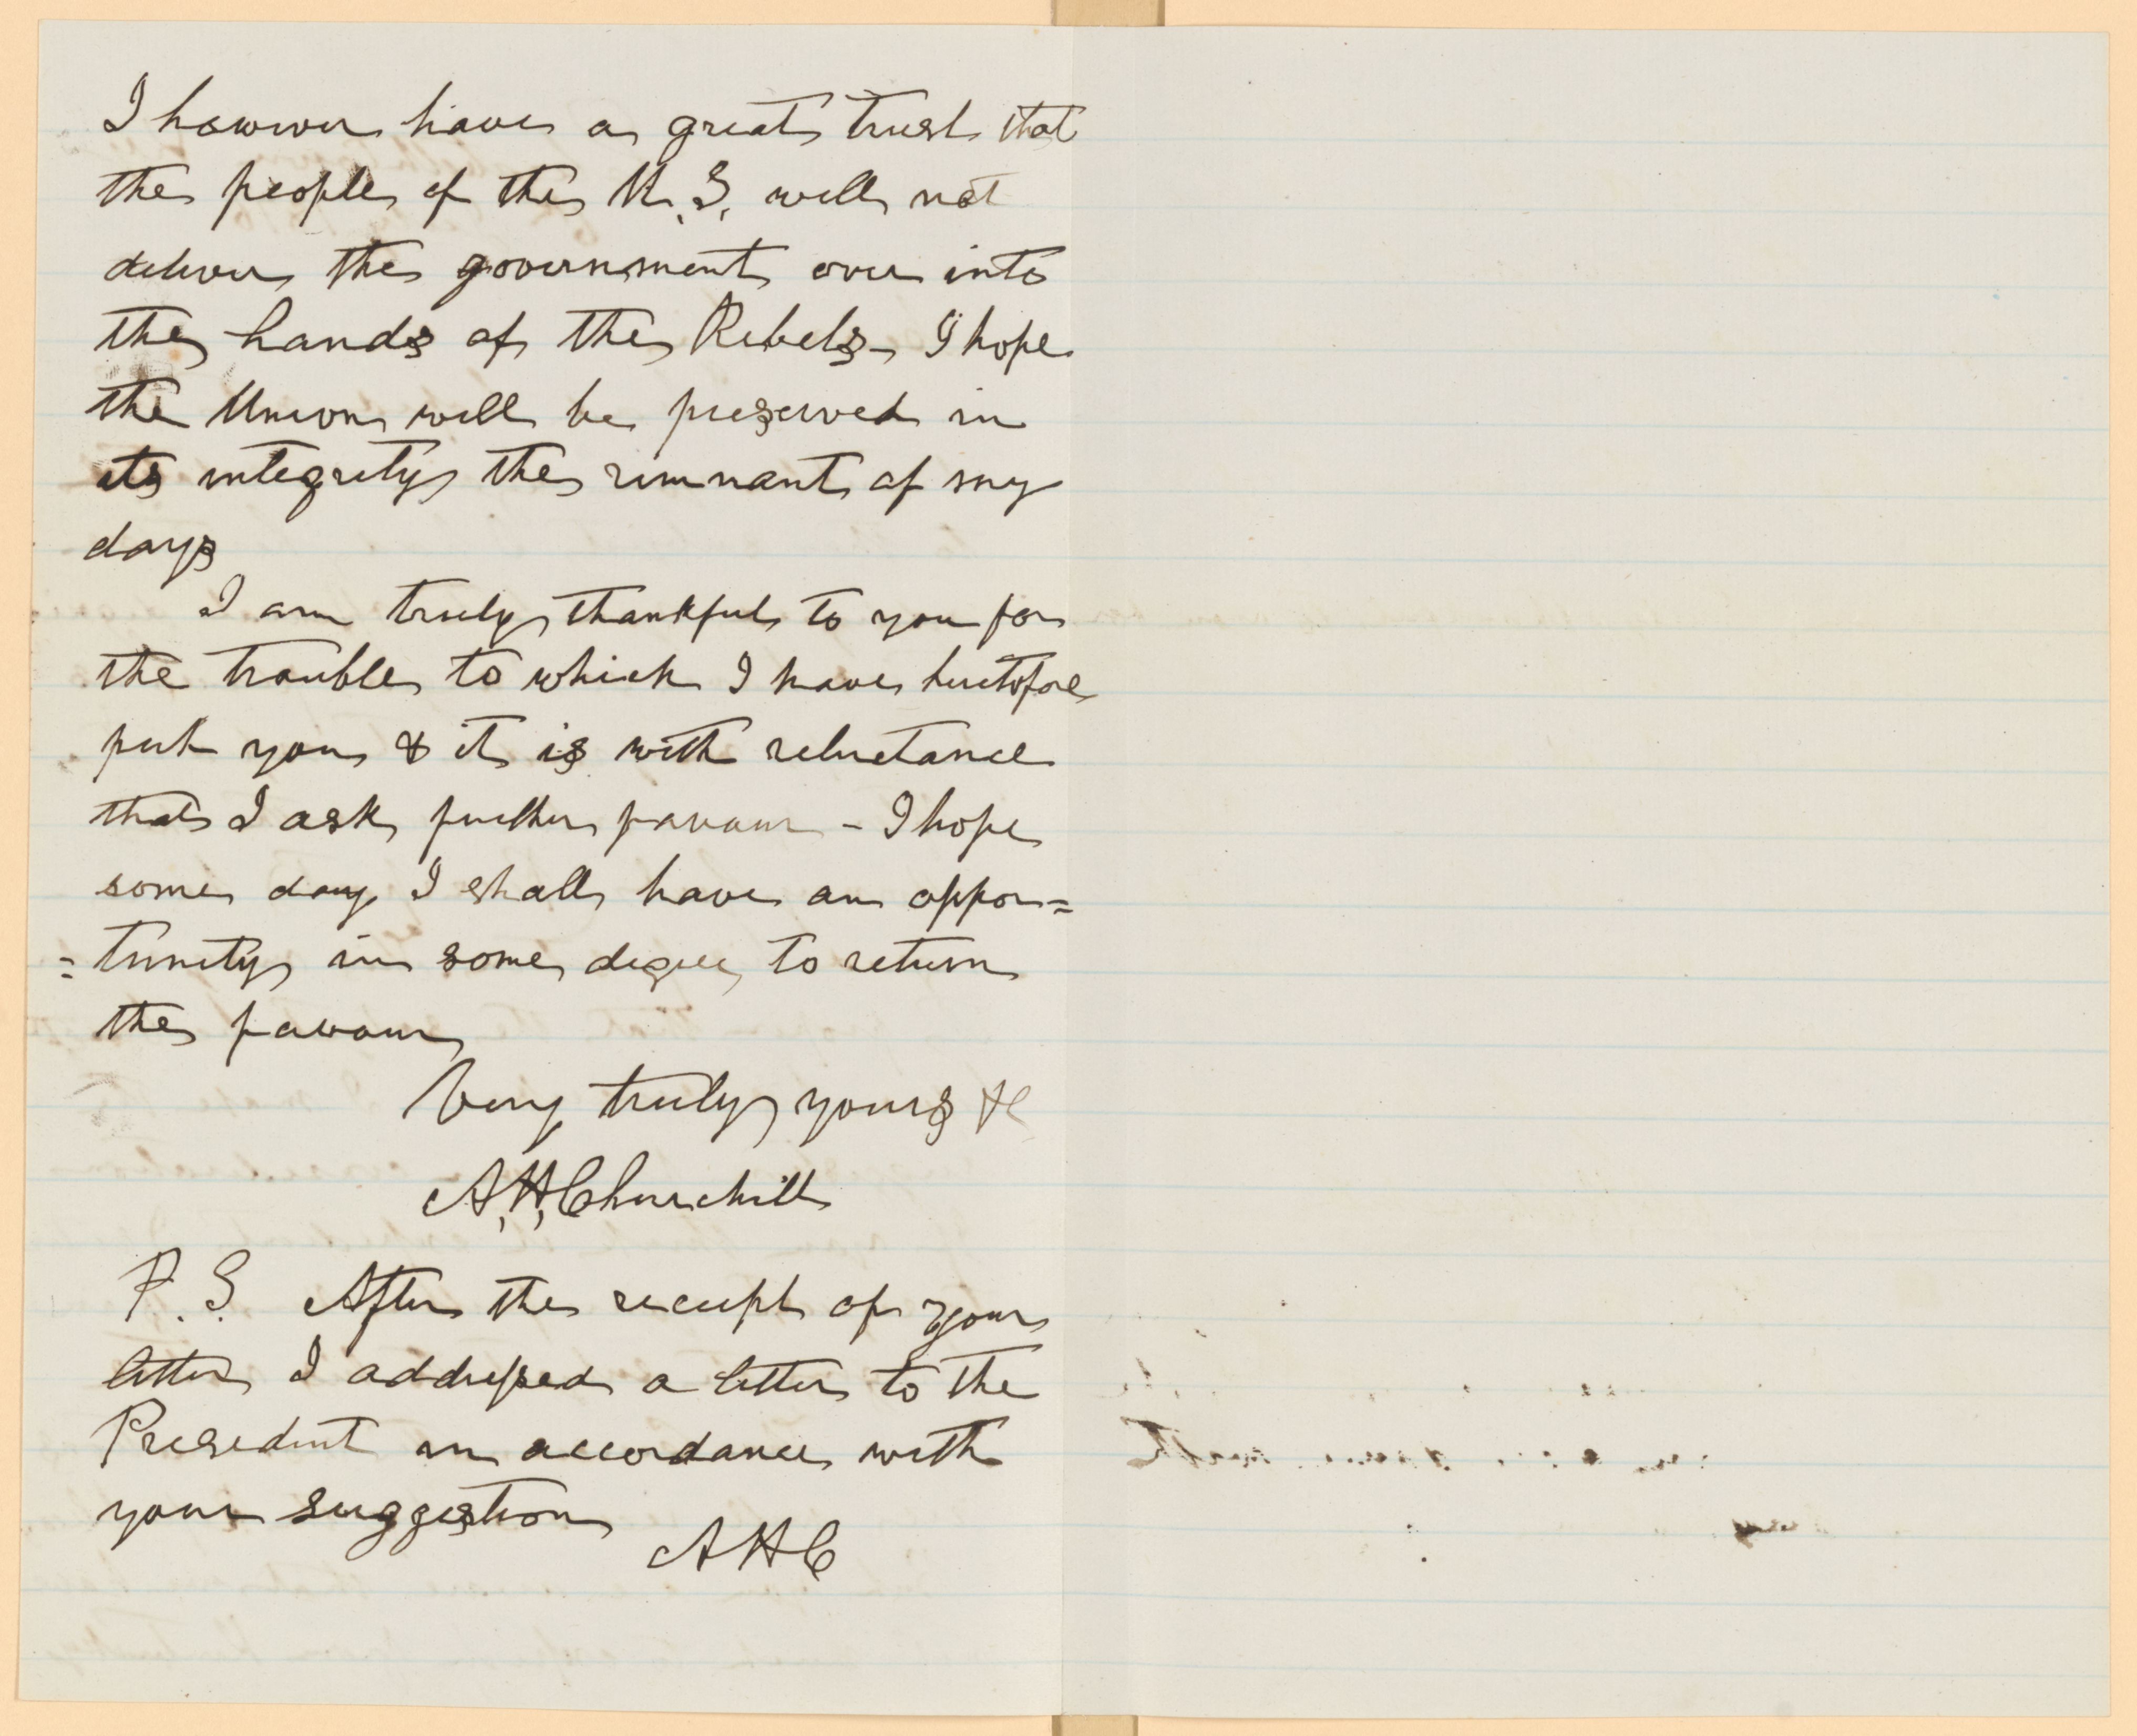 I however have a great trust that
the people of the U.S. will not
deliver the government over into
the hands of the Rebels - I hope
the Union will be preserved in
its integrity the remnant of my
days
I am truly thankful to you for
the trouble to which I have heretofore
put you & it is with reluctance
that I ask further favour - I hope
some day I shall have an oppor=
=tunity in some degree to return
the favour
Very truly yours &c
A.H. Churchill
P.S. After the receipt of your
letter I addressed a letter to the
President in accordance with
your suggestion
AHC